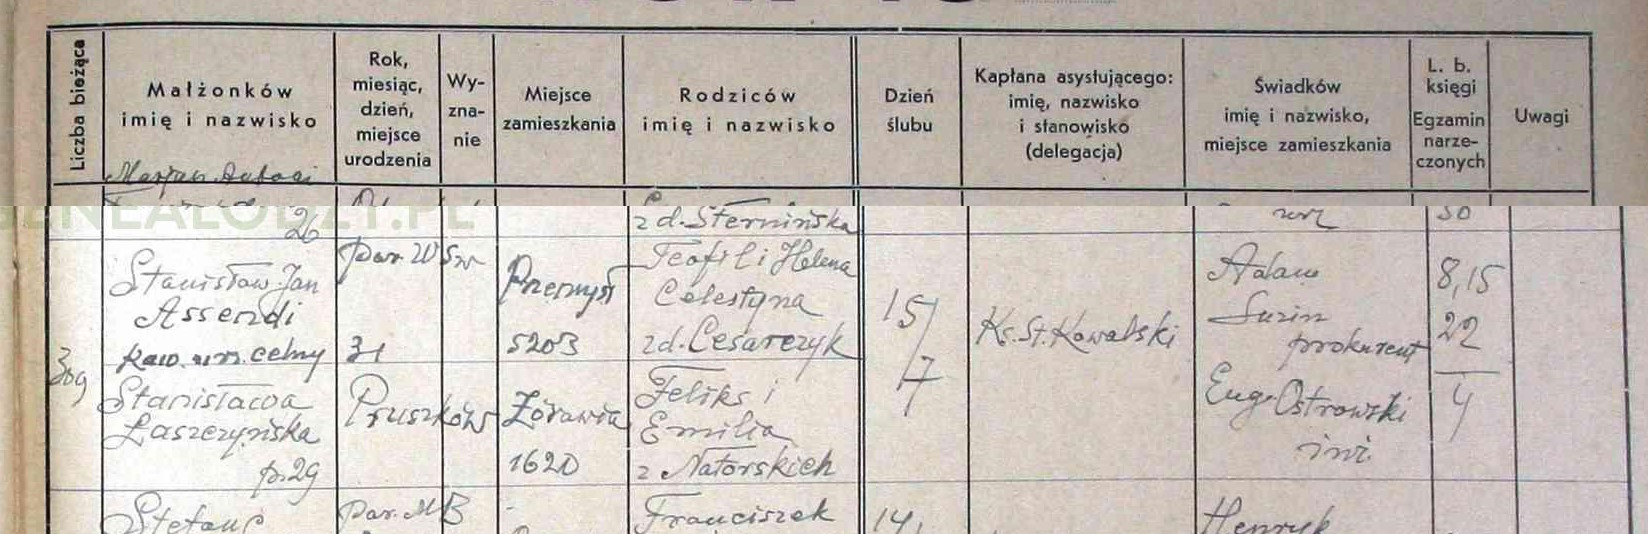 Liczba bieżąca
Małżonków
imię i nazwisko
Rok,
miesiąc,
dzień,
miejsce
urodzenia
Wy-
zna-
nie
Miejsce
zamieszkania
Rodziców
imię i nazwisko
Dzień
ślubu
Kapłana asystującego:
imię, nazwisko
i stanowisko
(delegacja)
Świadków
imię i nazwisko,
miejsce zamieszkania
L. b.
księgi
Egzamin
narze-
czonych
Uwagi
GENEALODZY.PL
26
z d. Sternińska
30
309
Stanisław Jan
Assendi
kaw. urz. celny
31
Przemyśl
5203
Teofil i Helena
Celestyna
zd. Cesarczyk
15/
7
Ks. St. Kowalski
Adam
Surin
prokurent
8,15
22
Stanisława
Łaszczyńska
p. 29
Pruszków
Żórawia
1620
Feliks i
Emilia
z Natorskich
Eug. Ostrowski
inż.
4
Par. M B
Franciszek
14,
Henryk